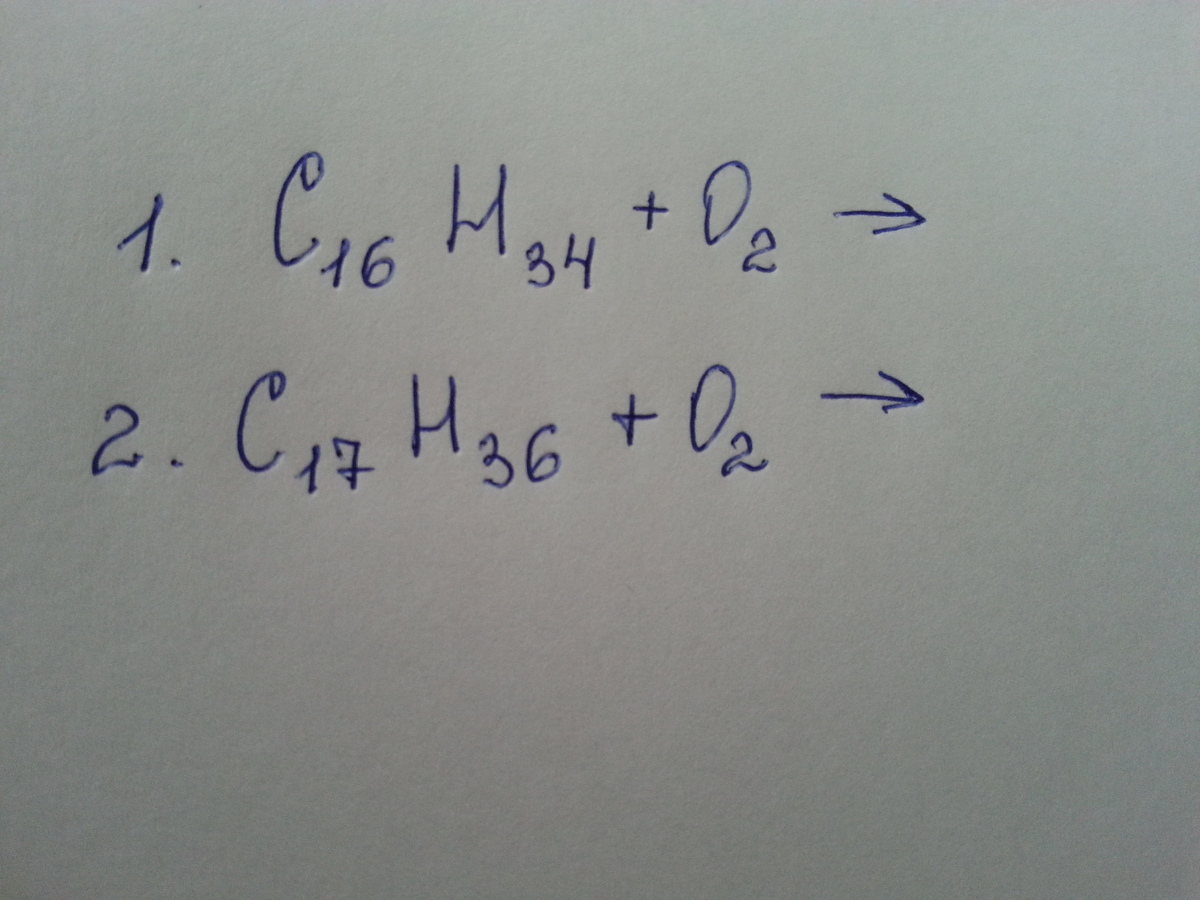 1. C₁₆H₃₄ + O₂ →
2. C₁₇H₃₆ + O₂ →